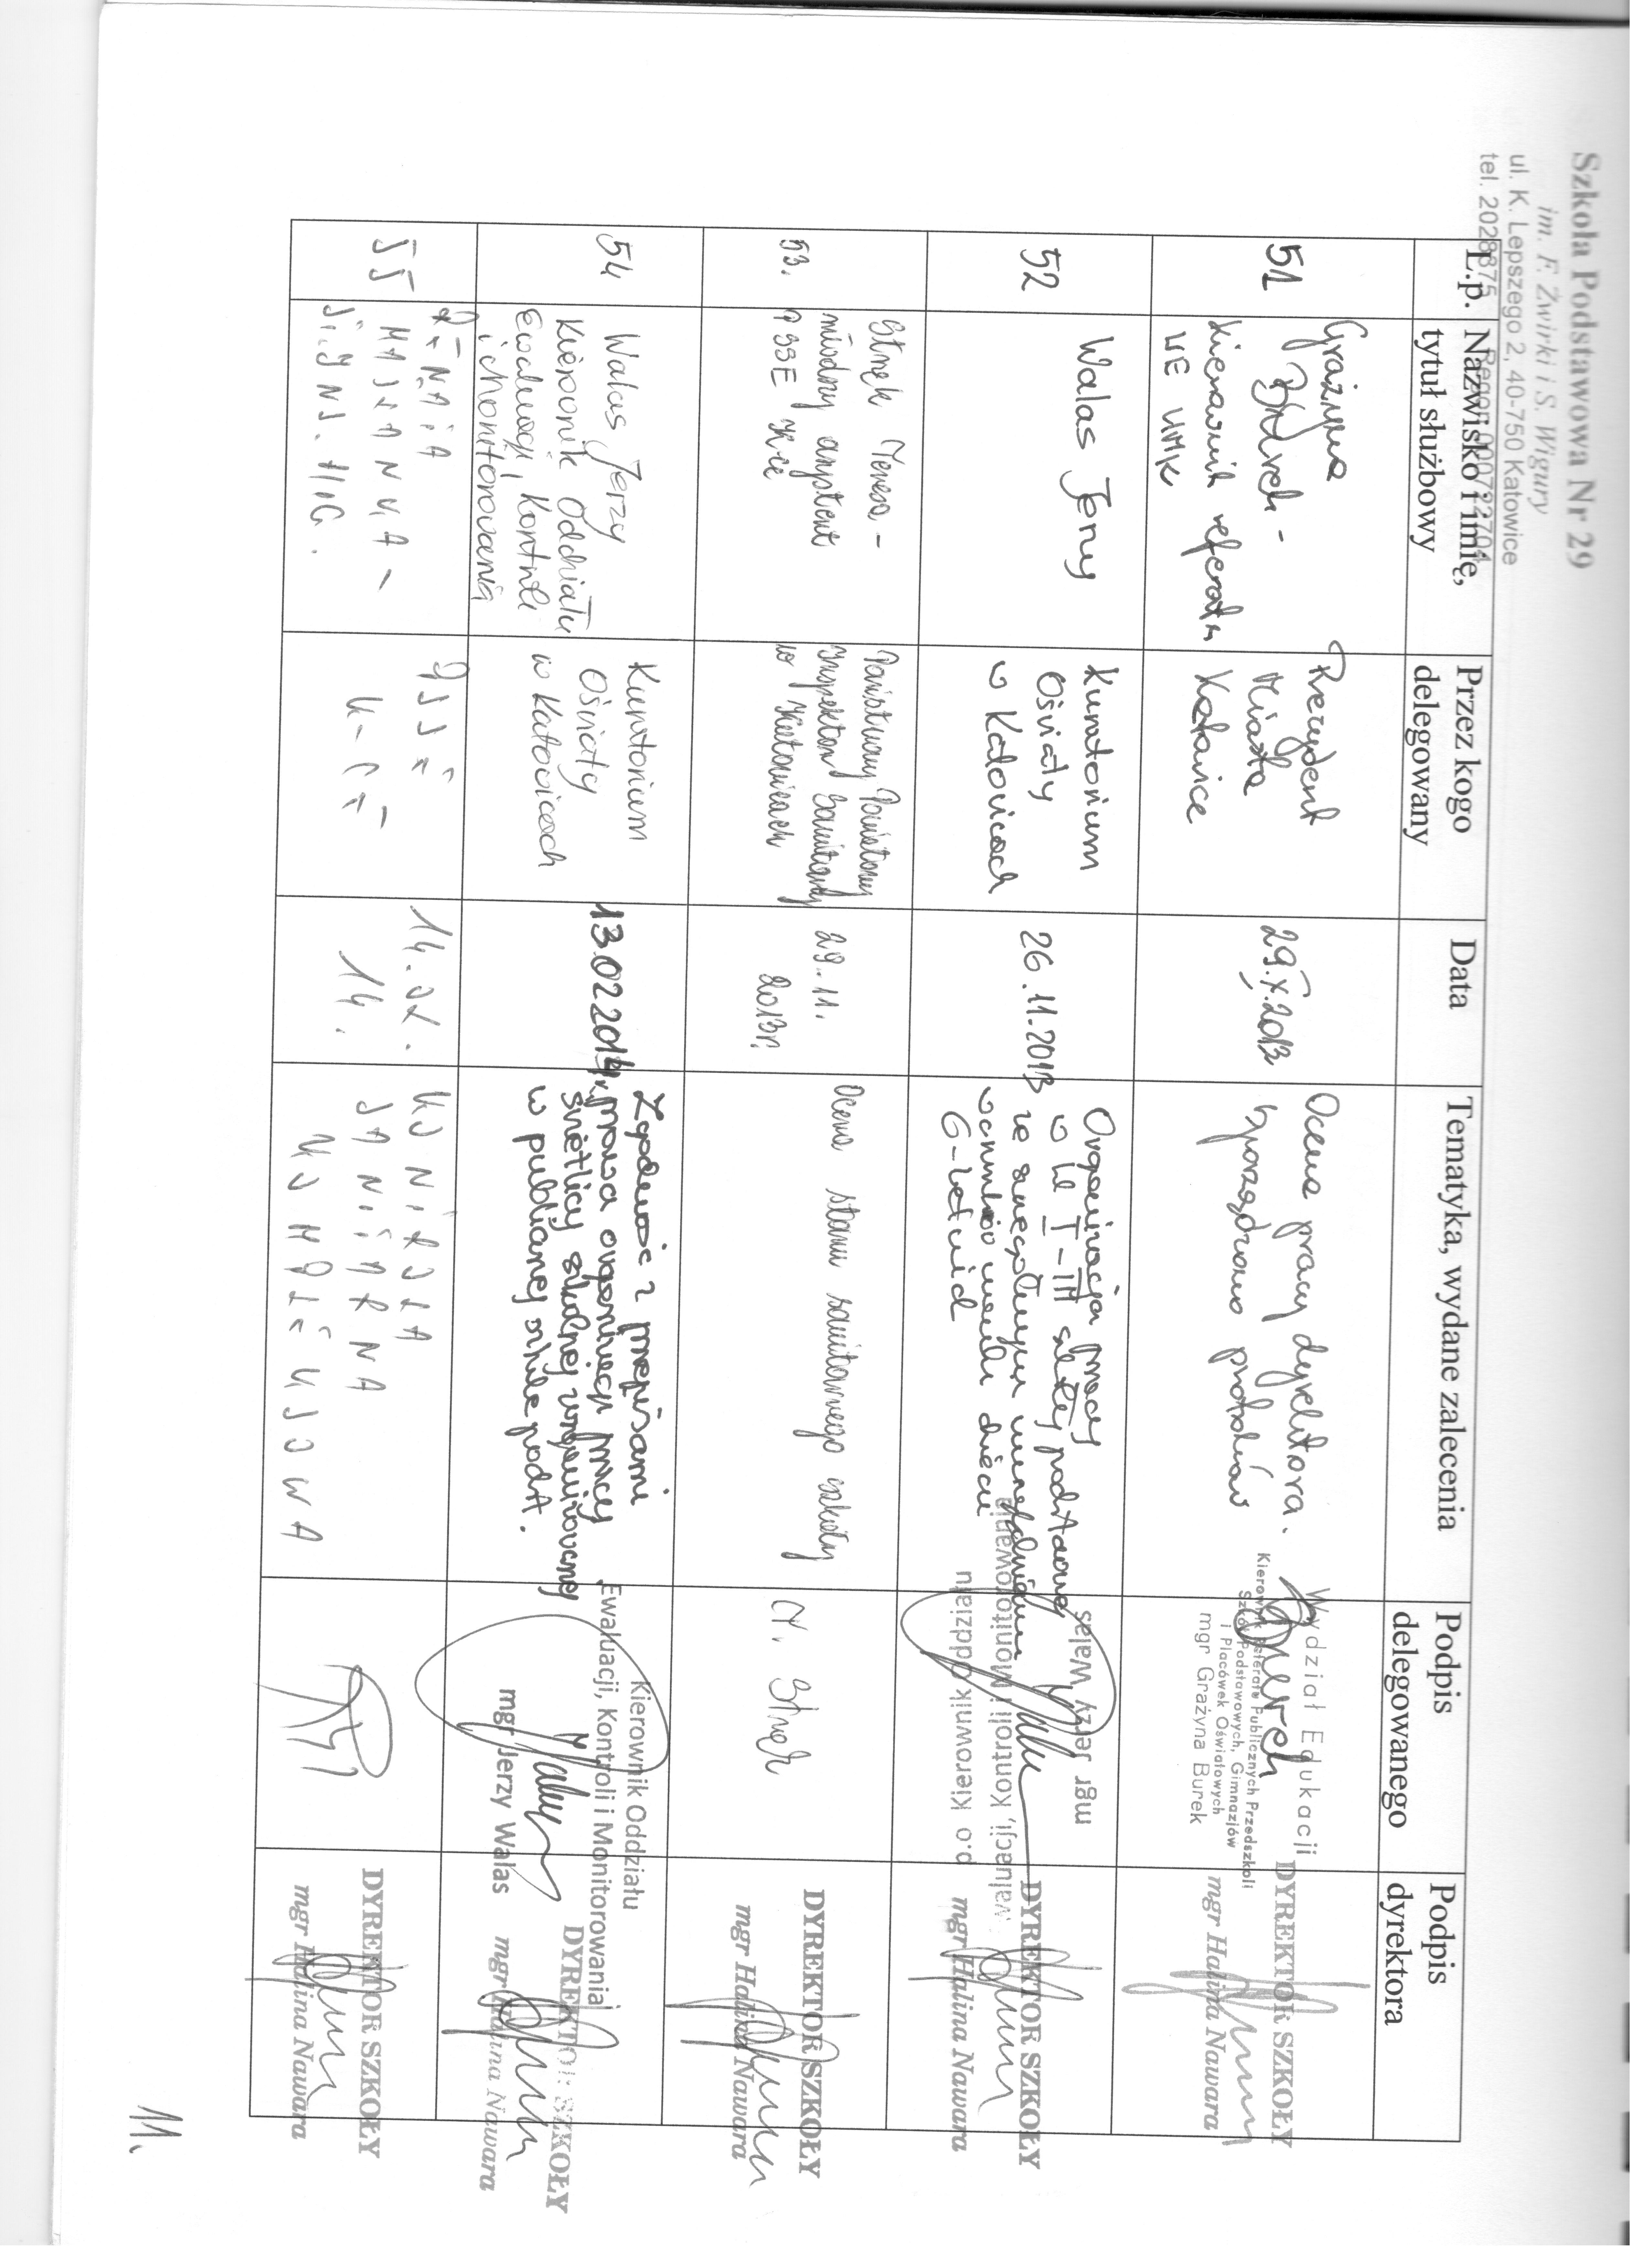 Szkoła Podstawowa Nr 29
im. F. Żwirki i S. Wigury
ul. K. Lepszego 2, 40-750 Katowice
tel. 2028875 Regon 000722704
L.p.
Nazwisko i imię,
tytuł służbowy
Przez kogo
delegowany
Data
Tematyka, wydane zalecenia
Podpis
delegowanego
Podpis
dyrektora
51
Grażyna
Burek -
kierownik referatu
WE UMK
Prezydent
Miasta
Katowice
29.X.2013
Ocena pracy dyrektora.
Sporządzono protokół
Wydział Edukacji
Kierownik Referatu Publicznych Przedszkoli
Szkół Podstawowych, Gimnazjów
i Placówek Oświatowych
mgr Grażyna Burek
DYREKTOR SZKOŁY
mgr Halina Nawara
52
Walas Jerzy
Kuratorium
Oświaty
w Katowicach
26.11.2013
Organizacja pracy
w kl I-III szkoły podstawowej
ze szczególnym uwzględnieniem
warunków nauki dzieci
6-letnich
p.o. Kierownik Oddziału
Ewaluacji, Kontroli i Monitorowania
mgr Jerzy Walas
DYREKTOR SZKOŁY
mgr Halina Nawara
53.
Teresa -
młodszy asystent
PSSE K-ce
Państwowy Powiatowy
Inspektor Sanitarny
w Katowicach
29.11.
2013r.
Ocena stanu sanitarnego szkoły
DYREKTOR SZKOŁY
mgr Halina Nawara
54
Walas Jerzy
Kierownik Oddziału
Ewaluacji, Kontroli
i Monitorowania
Kuratorium
Oświaty
w Katowicach
13.02.2014r.
Zgodność z przepisami
prawa organizacji pracy
świetlicy szkolnej zorganizowanej
w publicznej szkole podst.
Kierownik Oddziału
Ewaluacji, Kontroli i Monitorowania
mgr Jerzy Walas
DYREKTOR SZKOŁY
mgr Halina Nawara
55
PSSE
K-CE
14.02.
14.
KONTROLA
SANITARNA
KOMPLEKSOWA
DYREKTOR SZKOŁY
mgr Halina Nawara
11.